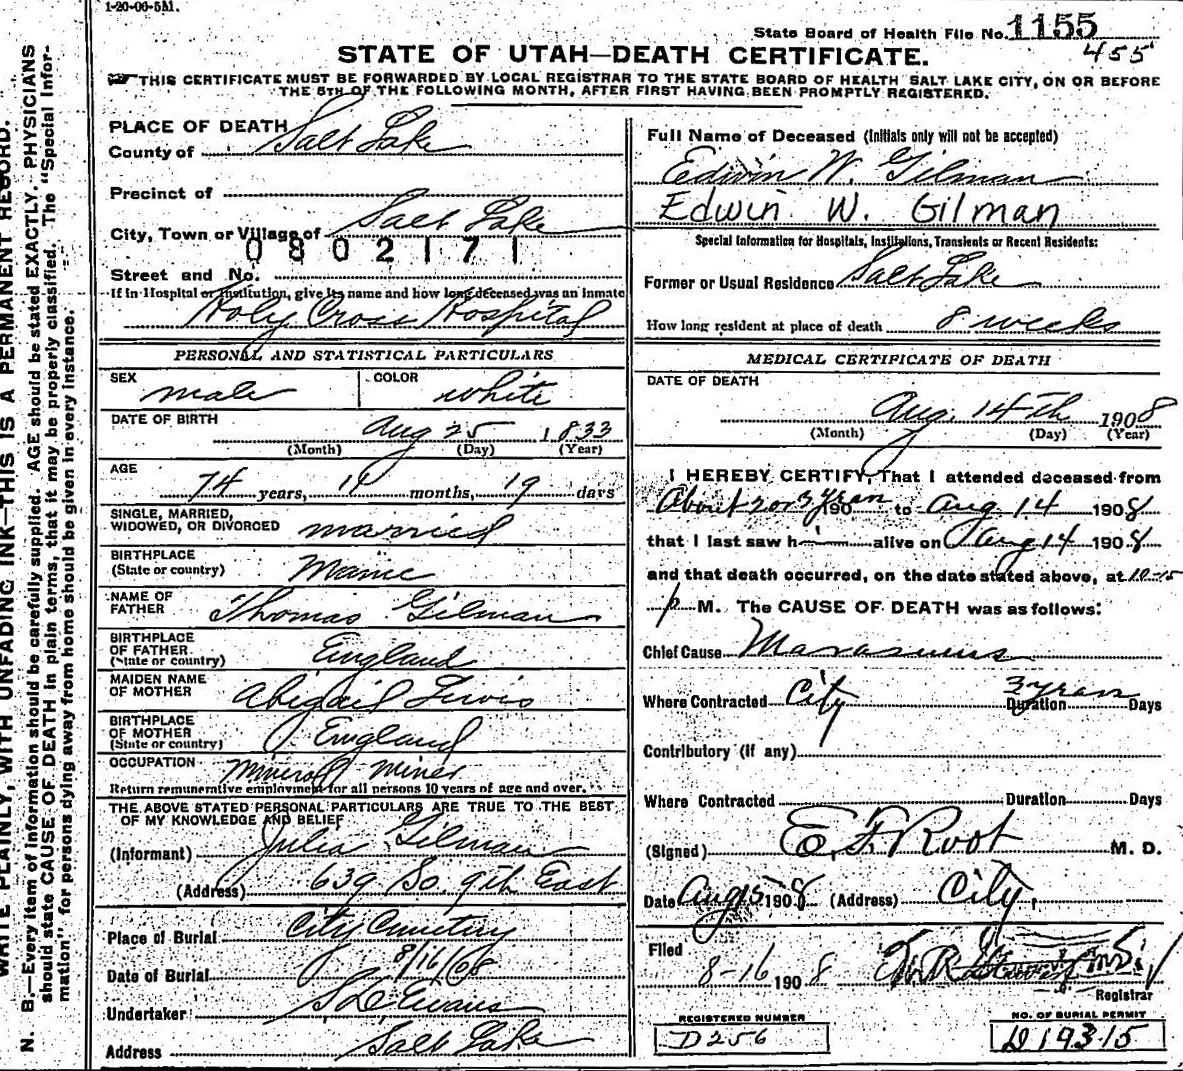 1-20-06-5M.
State Board of Health File No. 1155
455
STATE OF UTAH—DEATH CERTIFICATE.
THIS CERTIFICATE MUST BE FORWARDED BY LOCAL REGISTRAR TO THE STATE BOARD OF HEALTH SALT LAKE CITY, ON OR BEFORE
THE 5TH OF THE FOLLOWING MONTH, AFTER FIRST HAVING BEEN PROMPTLY REGISTERED.
PLACE OF DEATH
County of Salt Lake
Precinct of
City, Town or Village of Salt Lake
0802171
Street and No.
If in Hospital or Institution, give its name and how long deceased was an inmate
Holy Cross Hospital
PERSONAL AND STATISTICAL PARTICULARS
SEX male COLOR white
DATE OF BIRTH Aug 25 1833
(Month) (Day) (Year)
AGE
74 years, 11 months, 19 days
SINGLE, MARRIED,
WIDOWED, OR DIVORCED married
BIRTHPLACE
(State or country) Maine
NAME OF
FATHER Thomas Gilman
BIRTHPLACE
OF FATHER England
(State or country)
MAIDEN NAME
OF MOTHER Abigail Lewis
BIRTHPLACE
OF MOTHER England
(State or country)
OCCUPATION Mineral Miner
Return remunerative employment for all persons 10 years of age and over.
THE ABOVE STATED PERSONAL PARTICULARS ARE TRUE TO THE BEST
OF MY KNOWLEDGE AND BELIEF
(Informant) Julia Gilman
(Address) 639 So. 9th East
Place of Burial City Cemetery
Date of Burial 8/16/08
Undertaker S D Evans
Address Salt Lake
Full Name of Deceased (Initials only will not be accepted)
Edwin W. Gilman
Edwin W. Gilman
Special Information for Hospitals, Institutions, Transients or Recent Residents:
Former or Usual Residence Salt Lake
How long resident at place of death 8 weeks
MEDICAL CERTIFICATE OF DEATH
DATE OF DEATH
Aug. 14th 1908
(Month) (Day) (Year)
I HEREBY CERTIFY, That I attended deceased from
About 2 or 3 years 190 to Aug 14 1908
that I last saw h i alive on Aug 14 1908
and that death occurred, on the date stated above, at 10-15
p M. The CAUSE OF DEATH was as follows:
Chief Cause Marasmus
Where Contracted City 3 years Duration Days
Contributory (if any)
Where Contracted Duration Days
(Signed) E. F. Root M. D.
Date Aug 15 1908 (Address) City.
Filed
8-16 1908
Registrar
REGISTERED NUMBER
D256
NO. OF BURIAL PERMIT
D19315
WRITE PLAINLY, WITH UNFADING INK—THIS IS A PERMANENT RECORD.
N. B.—Every item of information should be carefully supplied. AGE should be stated EXACTLY. PHYSICIANS
should state CAUSE OF DEATH in plain terms, that it may be properly classified. The "Special Infor-
mation" for persons dying away from home should be given in every instance.